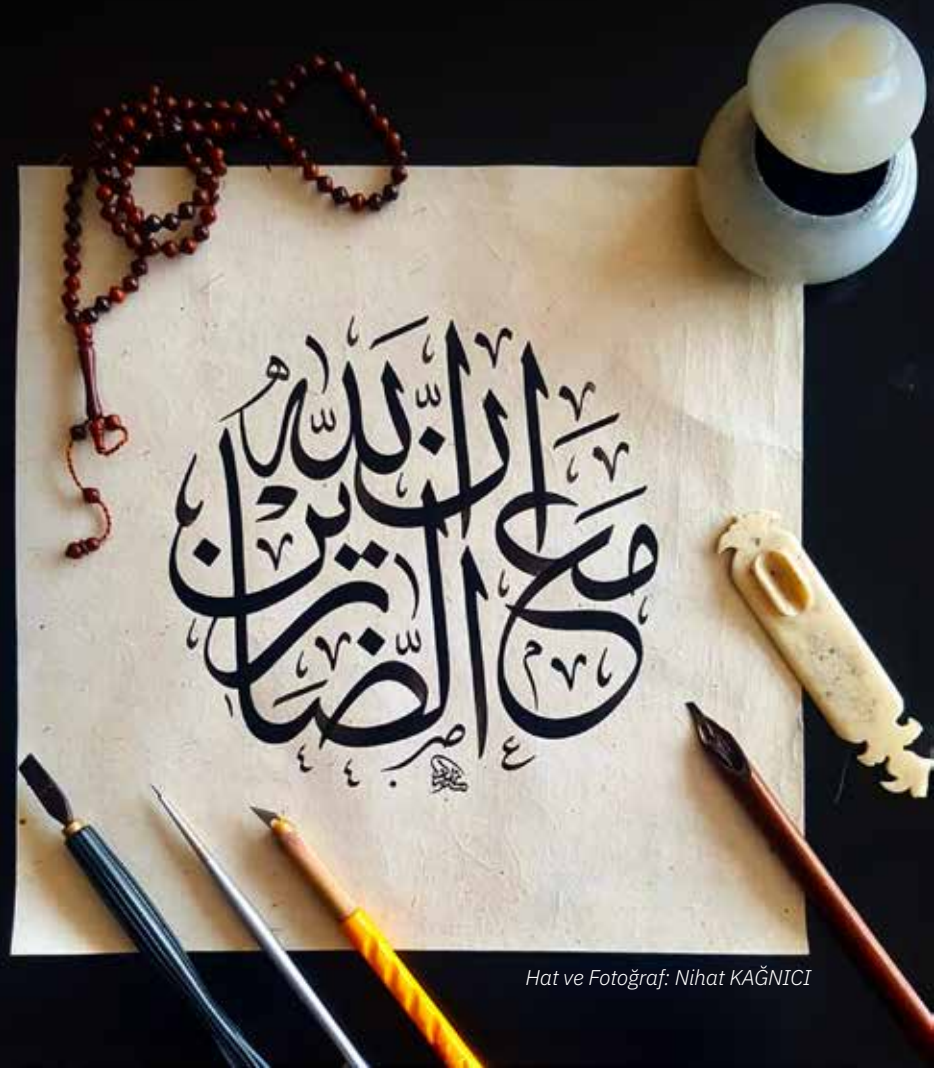 ان الله مع الصابرين
Hat ve Fotoğraf: Nihat KAĞNICI